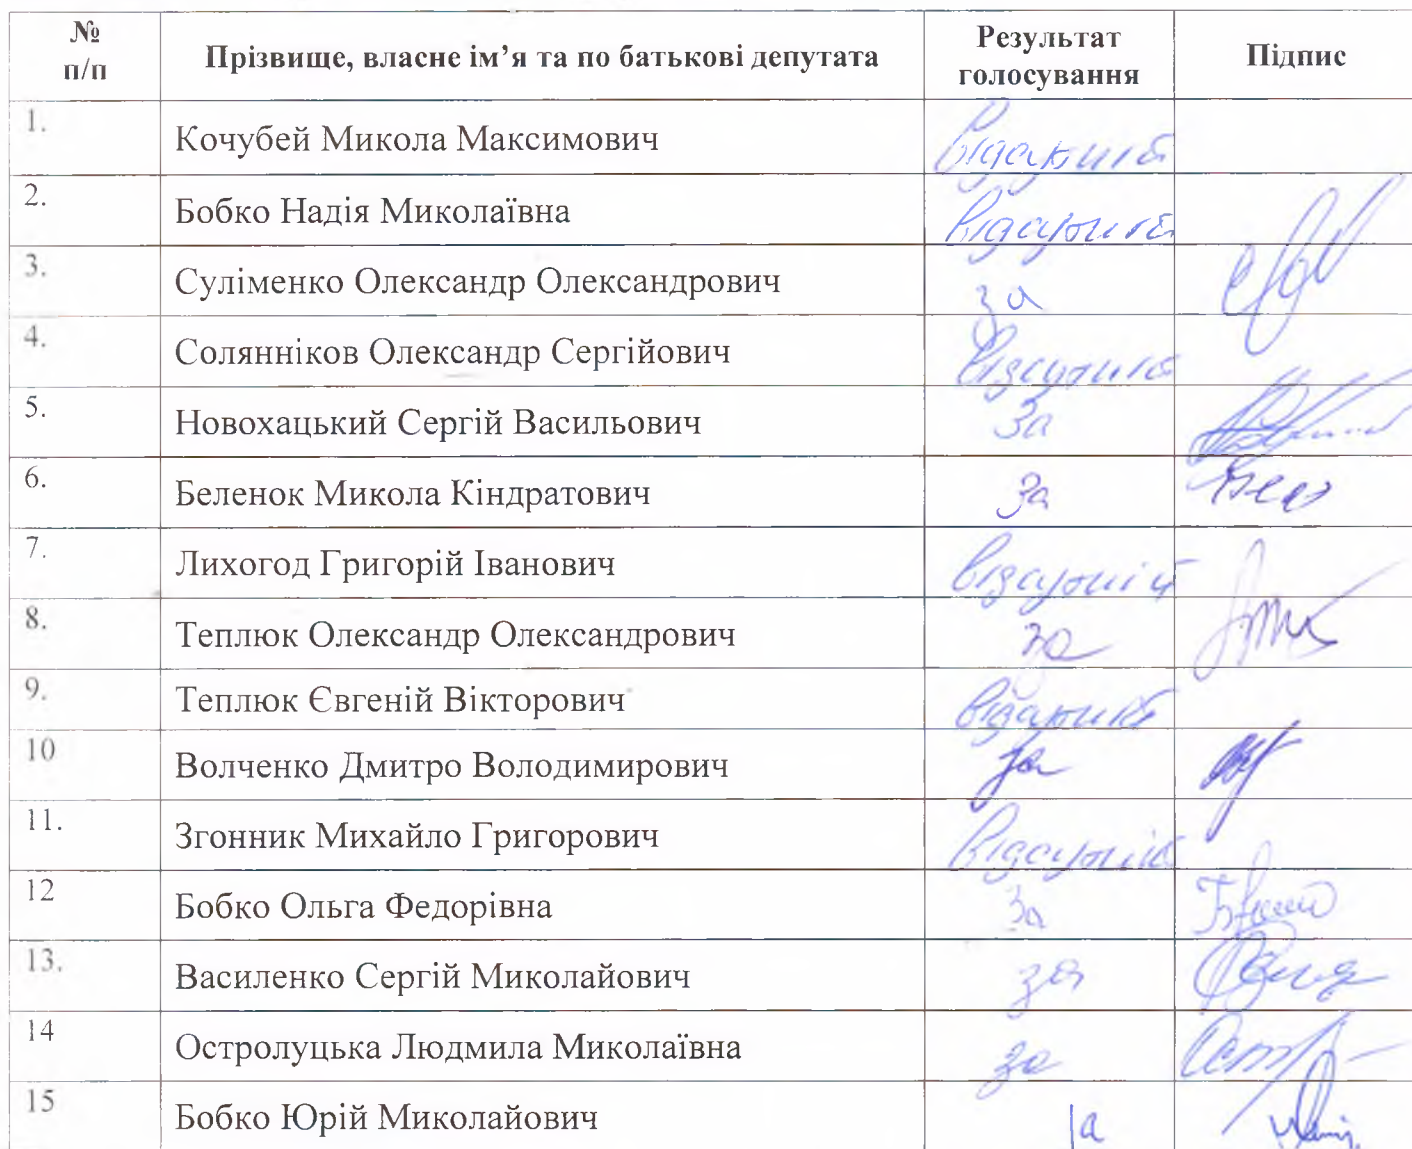 № п/п Прізвище, власне ім’я та по батькові депутата Результат голосування Підпис
1. Кочубей Микола Максимович відсутній
2. Бобко Надія Миколаївна відсутній
3. Суліменко Олександр Олександрович за
4. Солянніков Олександр Сергійович відсутній
5. Новохацький Сергій Васильович За
6. Беленок Микола Кіндратович За
7. Лихогод Григорій Іванович відсутній
8. Теплюк Олександр Олександрович за
9. Теплюк Євгеній Вікторович відсутній
10 Волченко Дмитро Володимирович за
11. Згонник Михайло Григорович відсутній
12 Бобко Ольга Федорівна За
13. Василенко Сергій Миколайович за
14 Остролуцька Людмила Миколаївна за
15 Бобко Юрій Миколайович за